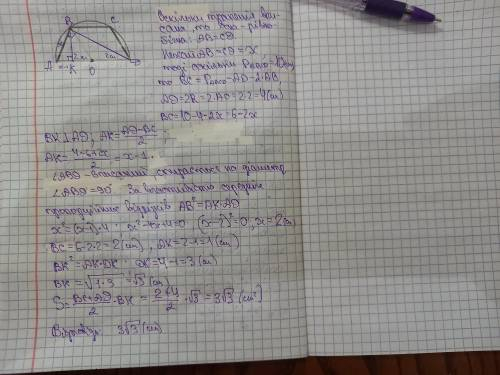 B C
A K O D
Оскільки трапеція впи-
сана, то вона – рівно-
бічна: AB=CD.
Нехай AB=CD=x
тоді оскільки P_ABCD=10 см,
то BC=P_ABCD-AD-2·AB
AD=2R=2·AO=2·2=4(см)
BC=10-4-2x=6-2x
BK⊥AD; AK=(AD-BC)/2
AK=(4-6+2x)/2=x-1.
∠ABD-вписаний, спирається на діаметр
∠ABD=90°. За властивістю середніх
пропорційних відрізків AB²=AK·AD
x²=(x-1)·4; x²-4x+4=0; (x-2)²=0, x=2(см)
BC=6-2·2=2(см), AK=2-1=1(см)
BK²=AK·DK; DK=4-1=3(см)
BK=√1·3=√3(см)
S=(BC+AD)/2·BK=(2+4)/2·√3=3√3(см²)
Відповідь: 3√3(см)